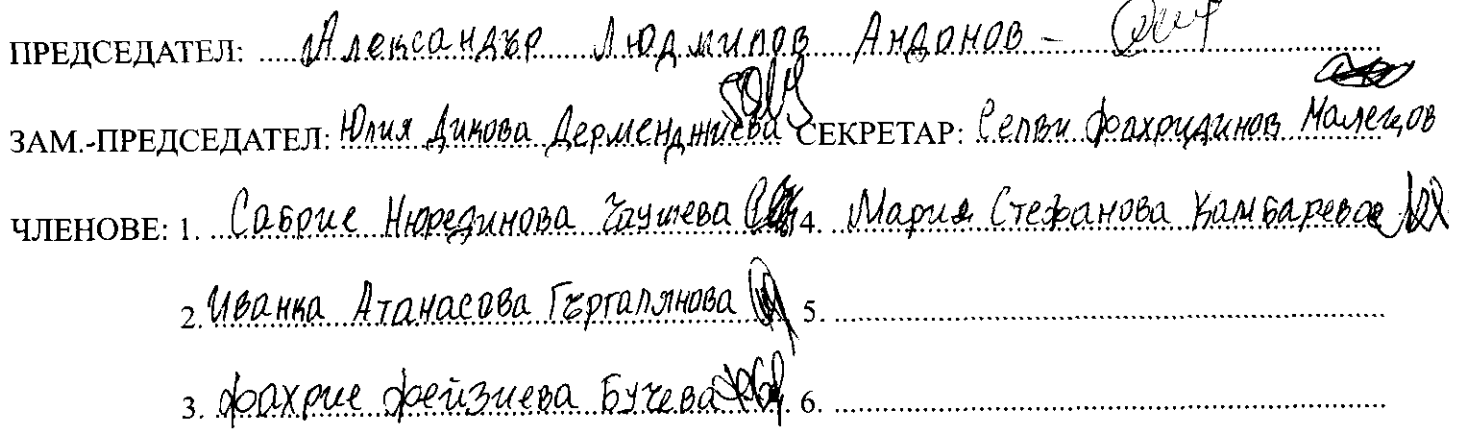 ПРЕДСЕДАТЕЛ: Александър Людмилов Андонов -
ЗАМ.-ПРЕДСЕДАТЕЛ: Юлия Дикова Дерменджиева СЕКРЕТАР: Селви Фахридинов Малецов
ЧЛЕНОВЕ: 1. Сабрие Нюрединова Чаушева 4. Мария Стефанова Камбарева
2. Иванка Атанасова Гъргалянова 5.
3. Фахрие Фейзиева Бучева 6.